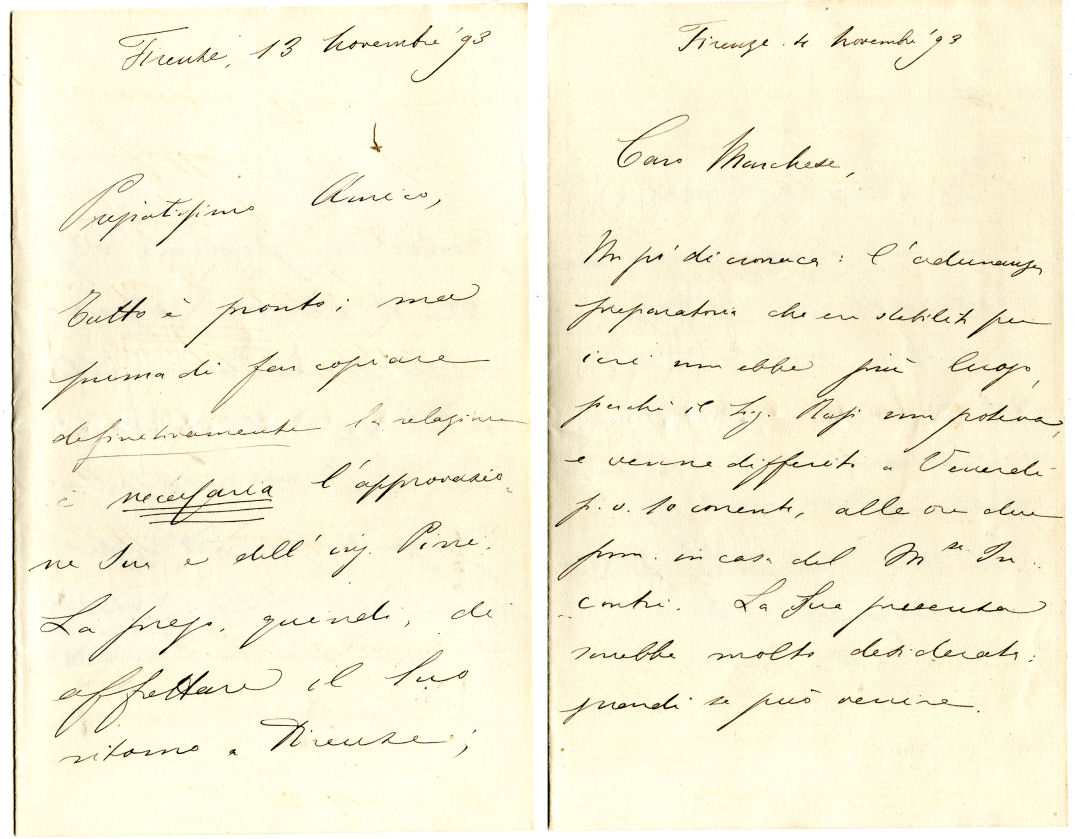 Firenze, 13 novembre '93
Pregiatissimo Amico,
Tutto è pronto; ma
prima di far copiare
definitivamente la relazione
è necessaria l'approvazio-
ne Sua e dell'ing. Pini.
La prego, quindi, di
affrettare il Suo
ritorno a Firenze;
Firenze 4 novembre '93
Caro Marchese,
Un pò di cronaca: l'adunanza
preparatoria che era stabilita per
ieri non ebbe più luogo,
perchè il Sig. non poteva,
e venne differita a Venerdì
p. v. 10 corrente, alle ore due
pom. in casa del M.se In-
contri. La Sua presenza
sarebbe molto desiderata:
quindi se può venire.